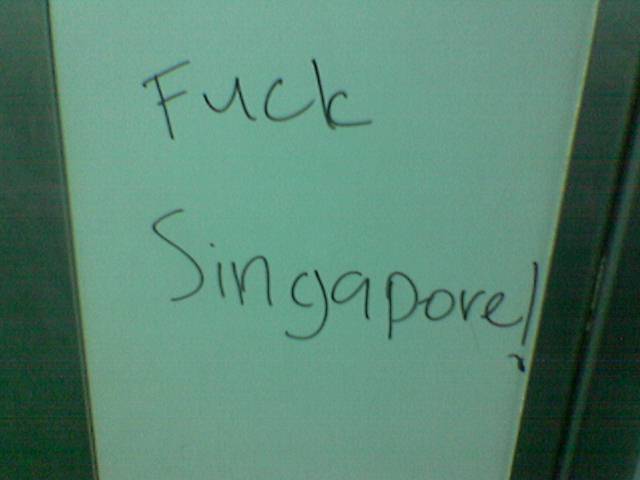 Fuck
Singapore!